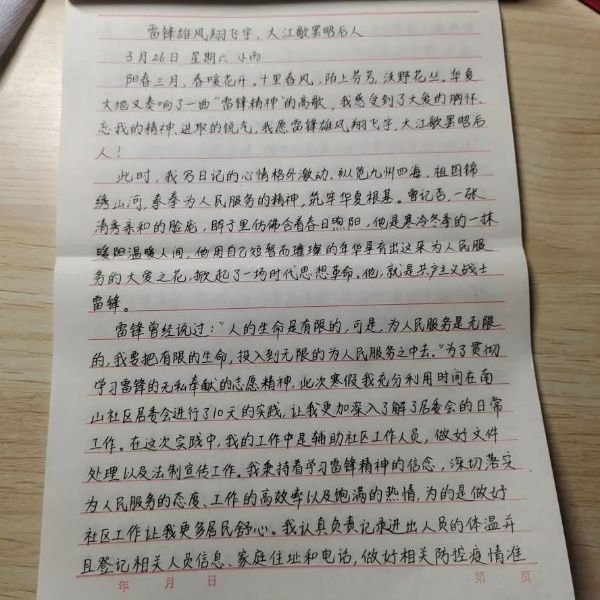 雷锋雄风翔飞宇，大江歌罢昭后人
3月26日 星期六 小雨
阳春三月，春暖花开。十里春风，陌上芬芳，沃野花丛。华夏
大地又奏响了一曲"雷锋精神"的高歌，我感受到了大爱的胸怀、
忘我的精神、进取的锐气，我愿雷锋雄风翔飞宇，大江歌罢昭后
人！
此时，我写日记的心情格外激动，纵览九州四海，祖国锦
绣山河，拳拳为人民服务的精神，筑牢华夏根基。曾记否，一张
清秀亲和的脸庞，眸子里仿佛含着春日煦阳，他是寒冷冬季的一抹
暖阳温暖人间，他用自己短暂而璀璨的年华孕育出这朵为人民服
务的大爱之花，掀起了一场时代思想革命。他，就是共产主义战士
雷锋。
雷锋曾经说过："人的生命是有限的，可是，为人民服务是无限
的，我要把有限的生命，投入到无限的为人民服务之中去。"为了贯彻
学习雷锋的无私奉献的志愿精神，此次寒假我充分利用时间在南
山社区居委会进行了10天的实践，让我更加深入了解了居委会的日常
工作。在这次实践中，我的工作中是辅助社区工作人员，做好文件
处理以及法制宣传工作。我秉持着学习雷锋精神的信念，深切落实
为人民服务的态度、工作的高效率以及饱满的热情，为的是做好
社区工作让我更多居民舒心。我认真负责记录进出人员的体温并
且登记相关人员信息、家庭住址和电话，做好相关防控疫情准
年 月 日 第 页